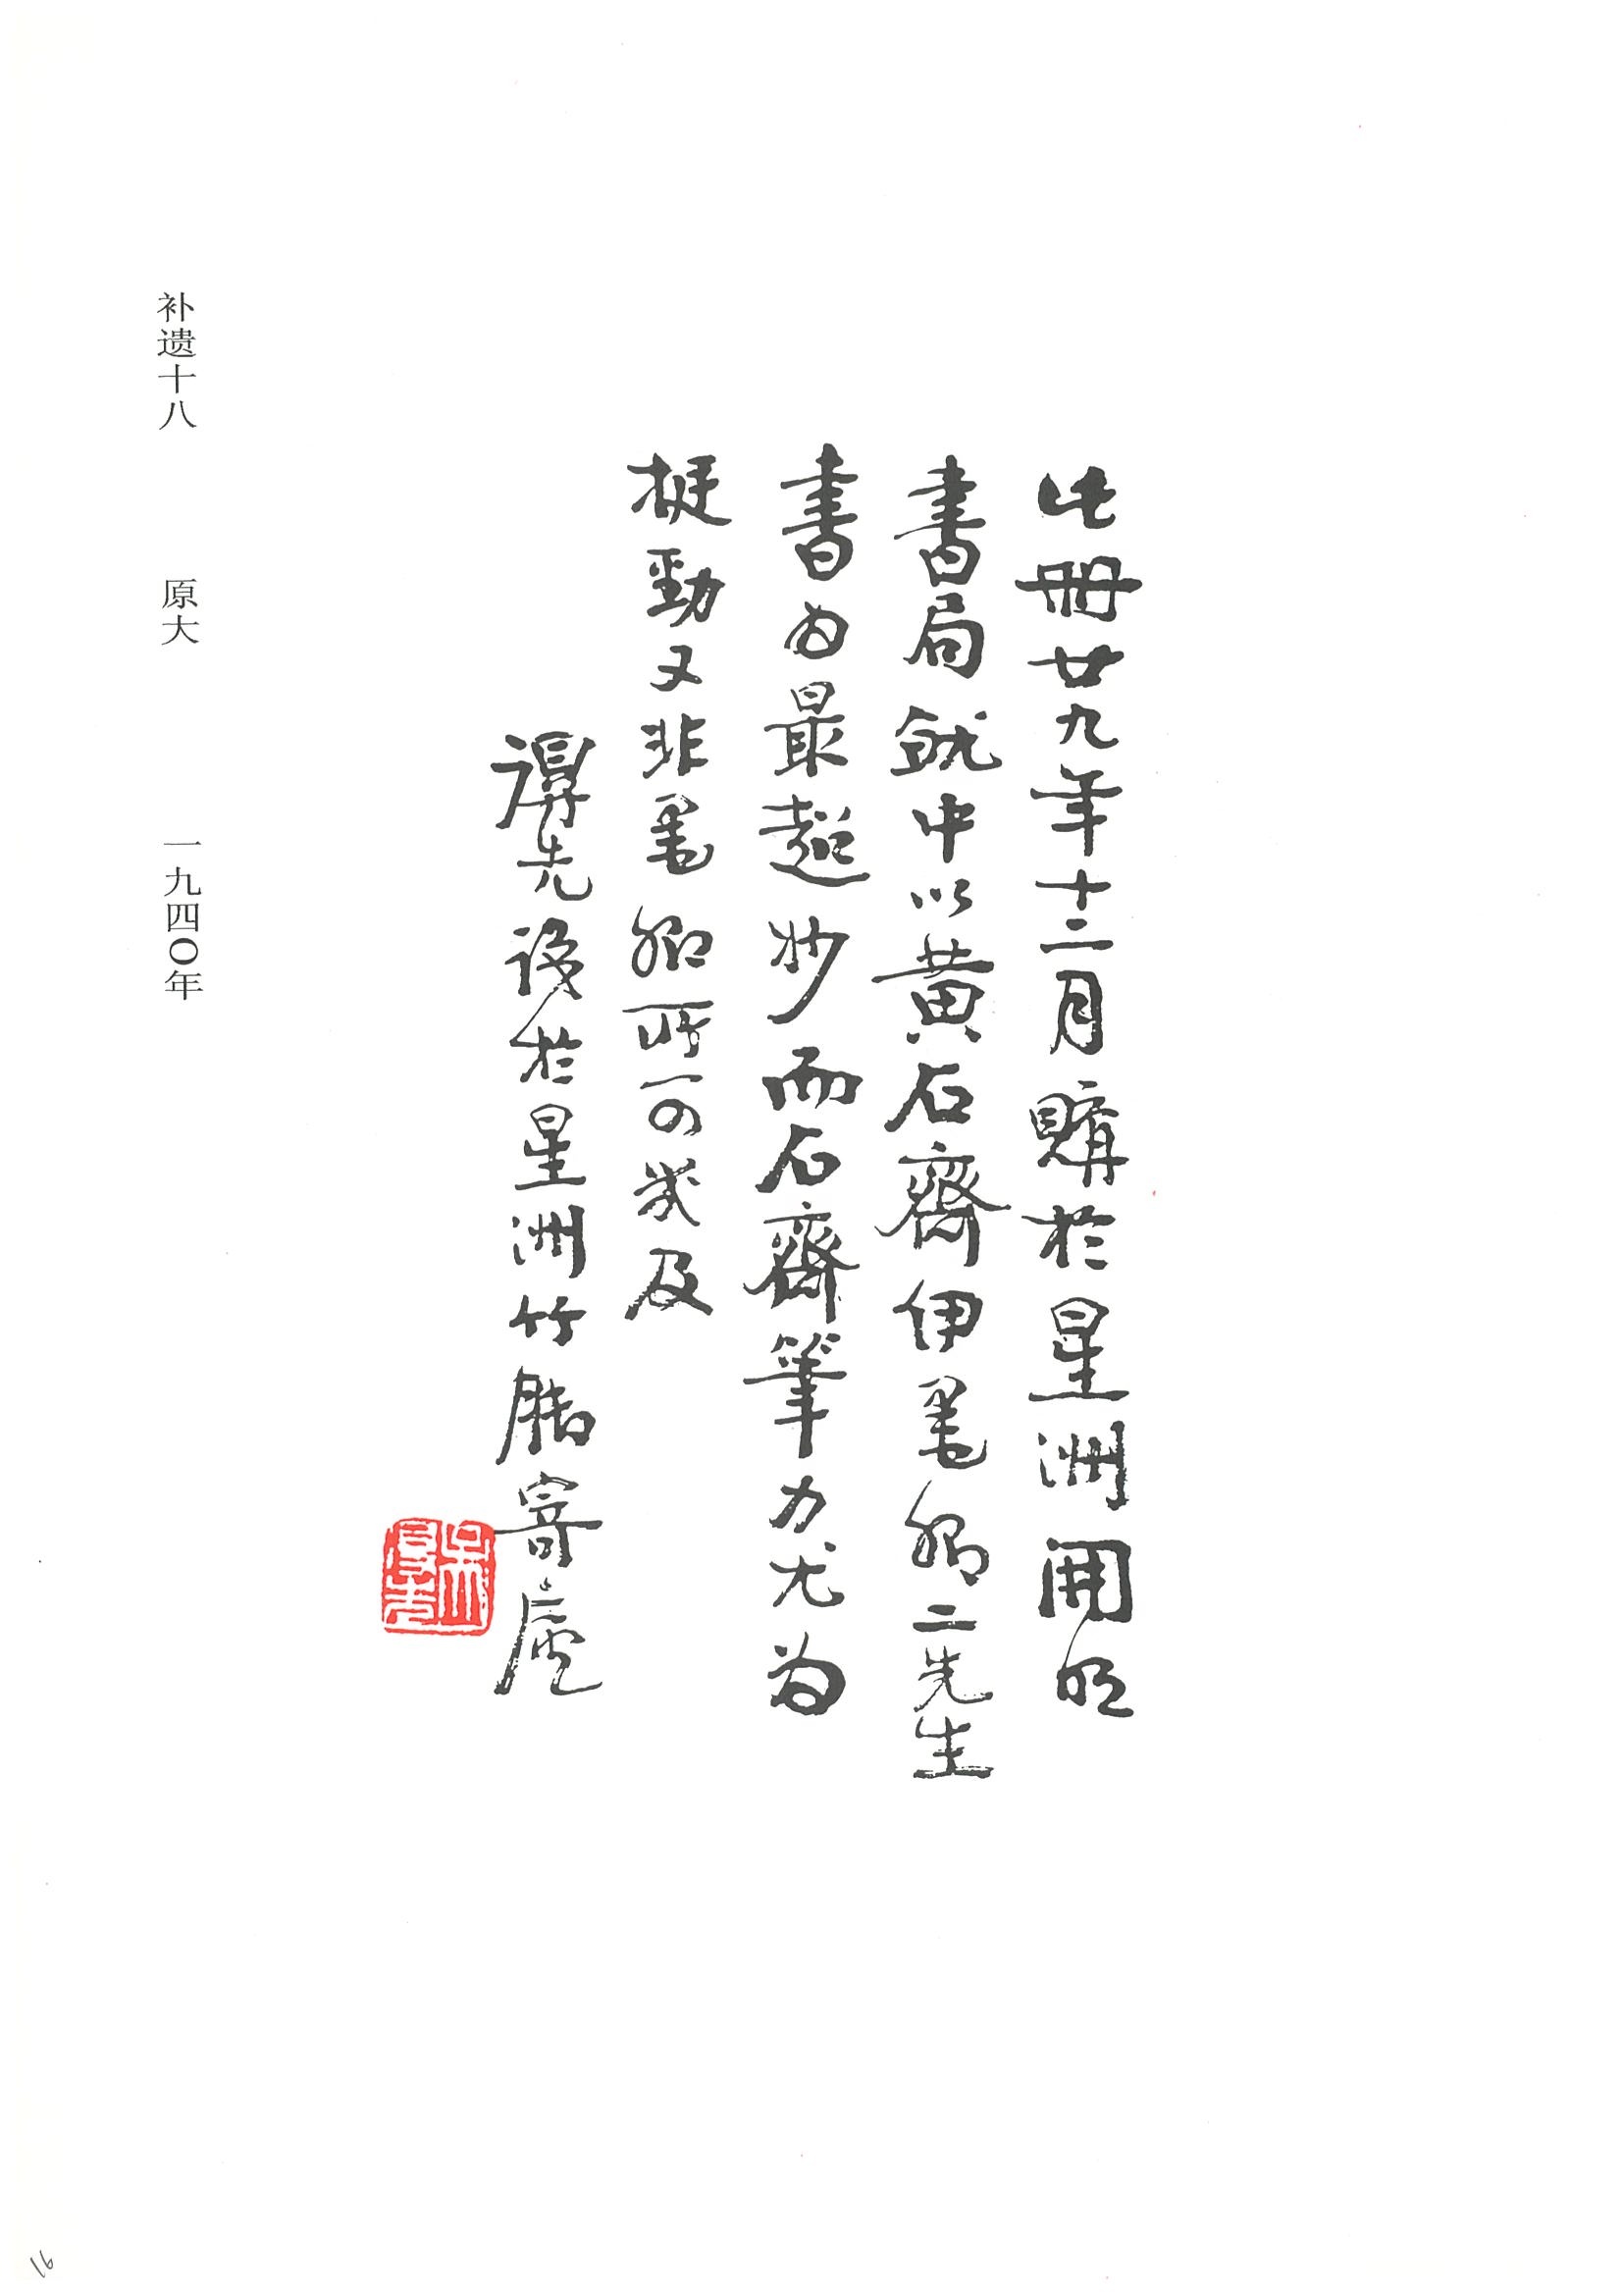 此冊廿九年十二月購於星洲開明
書局就中以黄石齋伊墨卿二先生
書为最超妙而石齋筆力尤为
挺勁又非墨卿所可幾及
得先於星洲竹脚寄廬
吴得先
补遗十八 原大 一九四〇年
16